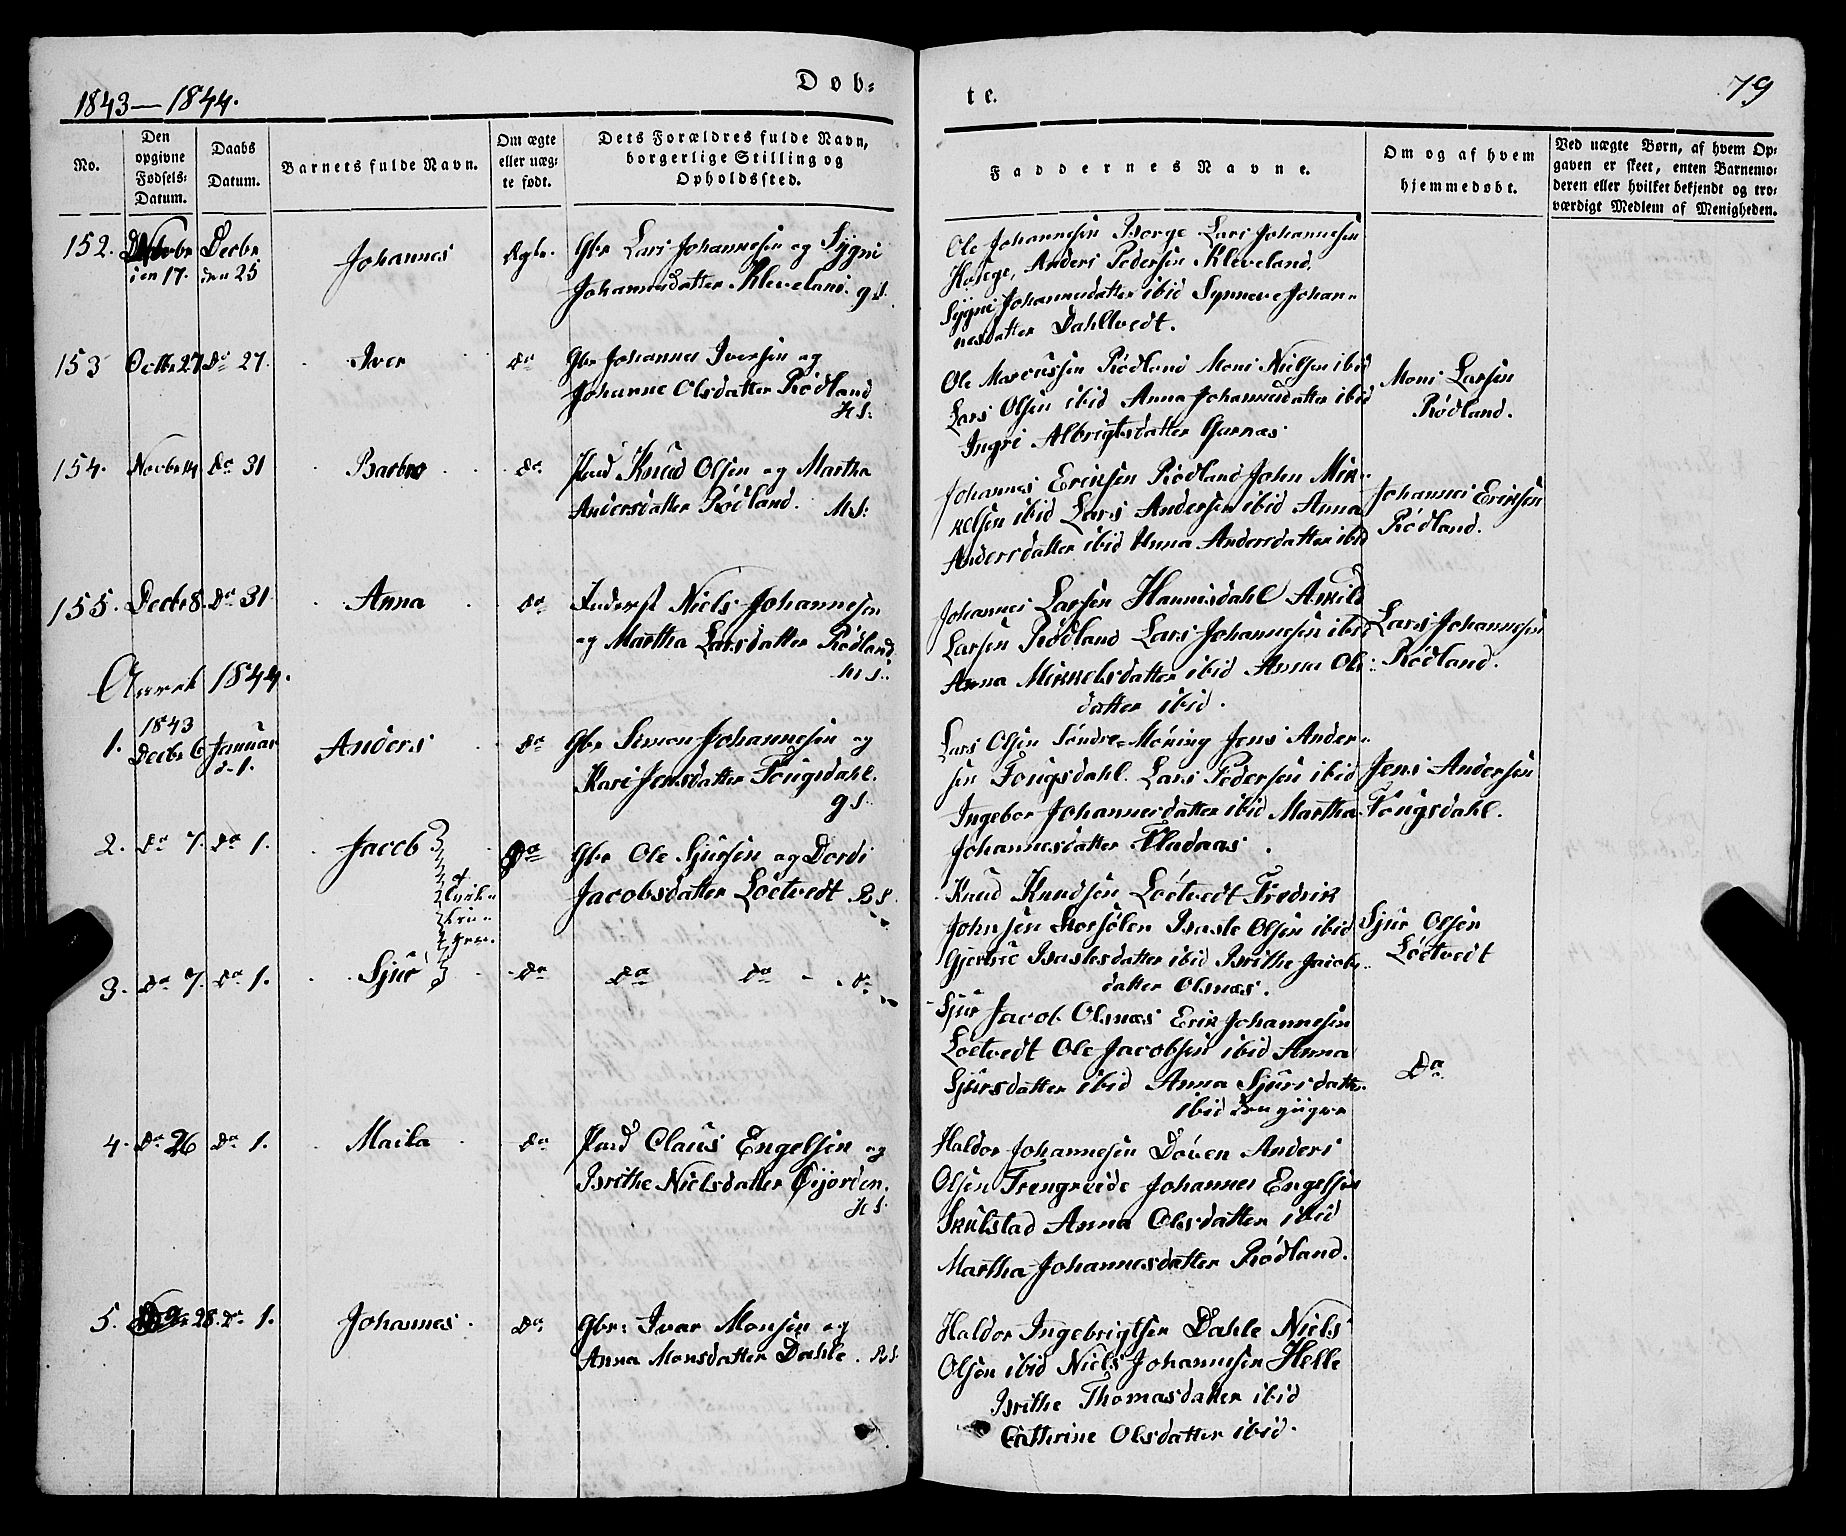 1843–1844.
Døb-
te.
79
No.
Den opgivne Fødsels-Datum.
Daabs Datum.
Barnets fulde Navn.
Om ægte eller uæg-te født.
Dets Forældres fulde Navn, borgerlige Stilling og Opholdssted.
Faddernes Navne.
Om og af hvem hjemmedøbt.
Ved uægte Børn, af hvem Op-
gaven er skeet, enten Barnemo-
deren eller hvilket bekjendt og tro-
værdigt Medlem af Menigheden.
152. Decbr Johannes Ægte. Gbr Lars Johannesen og Sygni
den 17. den 25 Johannesdatter Kleveland. gS.
Ole Johannesen Borge Lars Johannesen
Hauge, Anders Pedersen Kleveland,
Sygni Johannesdatter ibid Synneve Johan-
nesdatter Dahltvedt.
153 Octbr 27 Do 27. Iver Do Gbr Johannes Iversen og
Johanne Olsdatter Rødland
HS.
Ole Marcussen Rødland Moni Nielsen ibid
Lars Olsen ibid Anna Johannesdatter ibid
Ingri Albrigtsdatter Garnæs
Moni Larsen
Rødland.
154. Novbr 14. Do 31 Barbro Do Knud Olsen og Martha
Andersdatter Rødland. MS:
Johannes Eriksen Rødland John Mik-
kelsen ibid Lars Andersen ibid Anna
Andersdatter ibid Anna Andersdatter ibid
Johannes Eriksen
Rødland.
155. Decbr 8. Do 31 Anna Do Inderst Niels Johannesen
og Martha Larsdatter Rødland
MS.
Johannes Larsen Hannisdahl Arkild
Larsen Rødland Lars Johannesen ibid
Anna Mikkelsdatter ibid Anna Ols-
datter ibid.
Lars Johannesen
Rødland.
Aaret 1844.
1843
1. Decbr 6 Januar Anders Do Gbr Simon Johannesen og
d. 1. Kari Jensdatter Fougsdahl.
gS.
Lars Olsen Søndre-Møning Jens Ander-
sen Fougsdahl. Lars Pedersen ibid
Ingebor Johannesdatter ibid Martha
Johannesdatter Fladaas.
Jens Andersen
Fougsdahl.
2. Do 7. Do 1. Jacob Do Gbr Ole Sjursen og Dordi
Jacobsdatter Løetvedt RS.
Knud Knudsen Løetvedt Fredrik
Johnsen Storsølen Baste Olsen ibid
Gjertrue Bastesdatter ibid Brithe Jacobs-
datter Olsnæs.
Sjur Olsen
Løetvedt
3. Do 7. Do 1. Sjur Do Do Do Do
Sjur Jacob. Olsnæs Erik Johannesen
Løetvedt Ole Jacobsen ibid Anna
Sjursdatter ibid Anna Sjursdatter
ibid den yngre
Do
4. Do 26 Do 1. Maila Do Claus Engelsen og
Brithe Nielsdatter Gjorden.
HS.
Haldor Johannesen Døven Anders
Olsen Trengreide Johannes Engelsen
Skulstad Anna Olsdatter ibid
Martha Johannesdatter Rødland.
5. 28. Do 1. Johannes. Do Gbr: Ivar Monsen og
Anna Monsdatter Dahle. RS.
Haldor Ingebrigtsen Dahle Niels
Olsen ibid Niels Johannesen Helle
Brithe Thomasdatter ibid
Cathrine Olsdatter ibid.